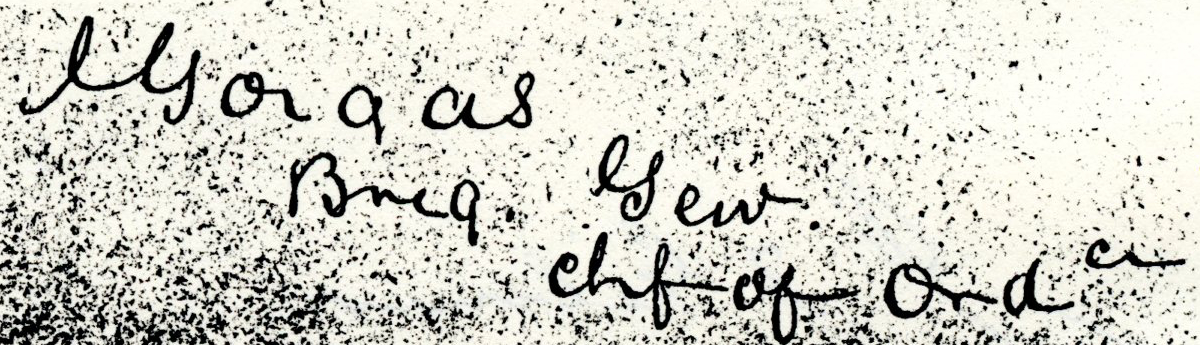 JGorgas
Brig. Gen.
chf of Ord ce